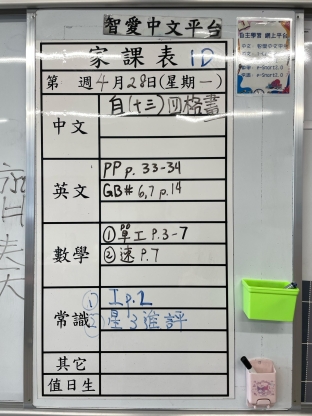 智愛中文平台
家課表 1D
第 週4月28日(星期一)
中文
自(十三)四格書
英文
PP p. 33-34
GB# 6,7 p.14
數學
①單工 P.3-7
②速 P.7
常識
① 工p.2
② 星3進評
其它
值日生
自主學習 網上平台